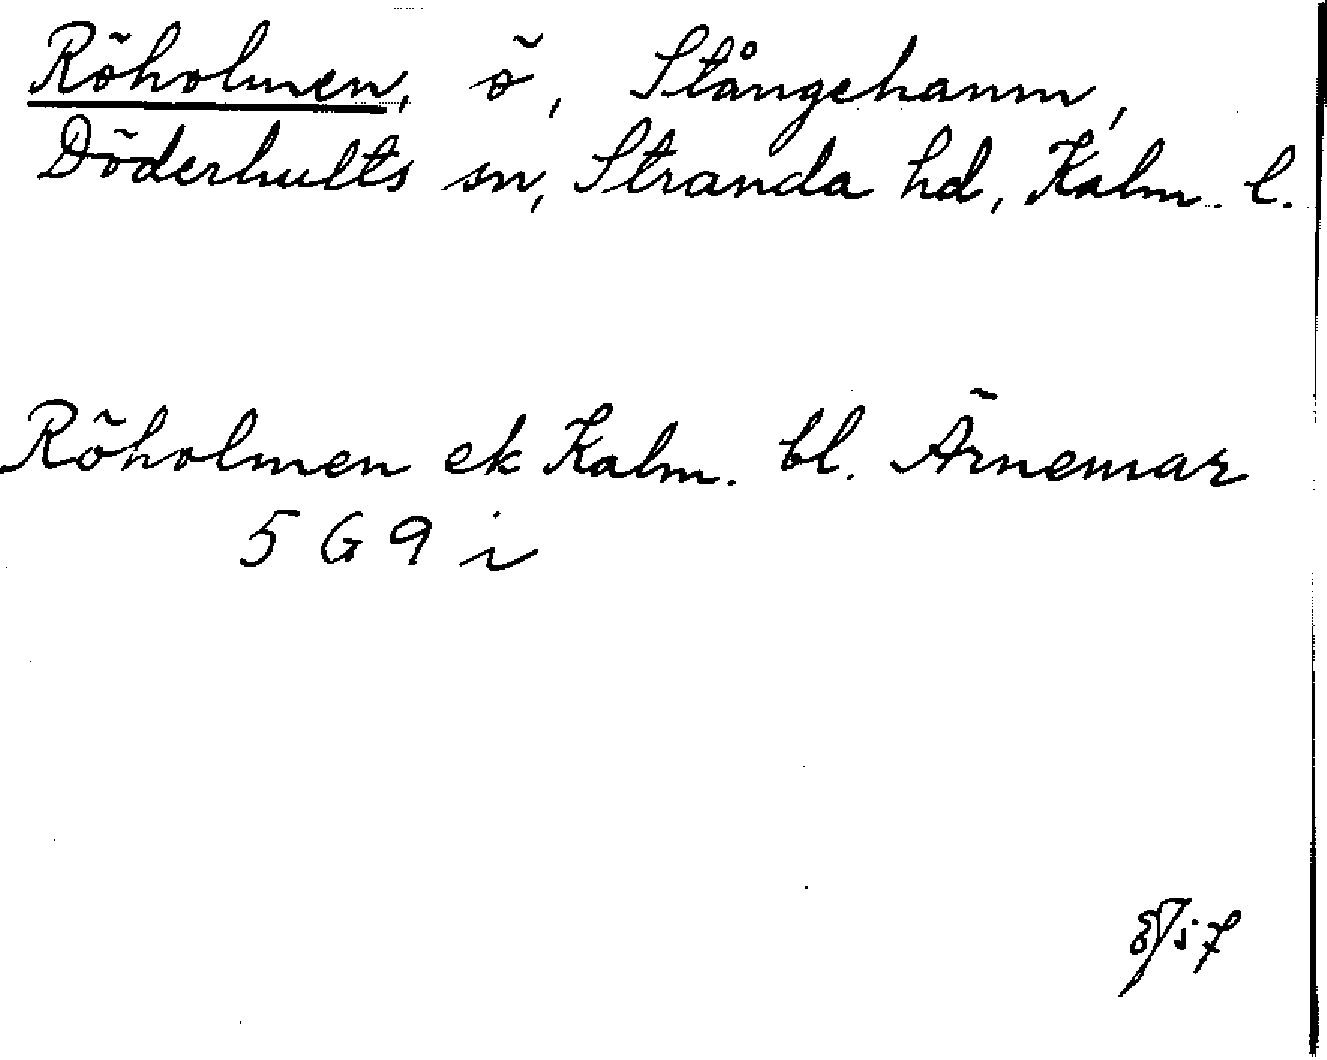 Röholmen, ö, Stångehamn,
Döderhults sn, Stranda hd, Kalm. l.
Röholmen ek Kalm. bl. Ärnemar
5 G 9 i